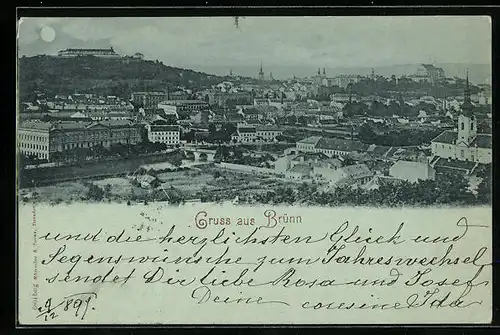 Gruss aus Brünn
und die herzlichsten Glück und
Segenswünsche zum Jahreswechsel
sendet Dir liebe Rosa und Josef
Deine cousine Ida